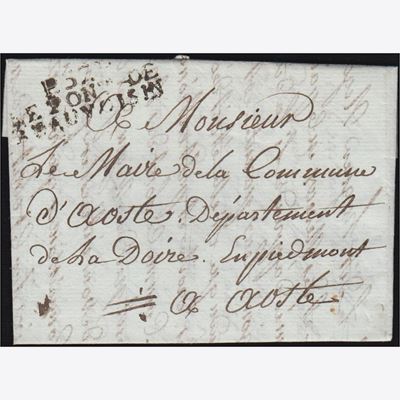 P.37.P. DE
LE PON
BEAUVOISIN
A Monsieur
Le Maire de la Commune
D'Aoste, Département
de La Doire. En piedmont
A Aoste